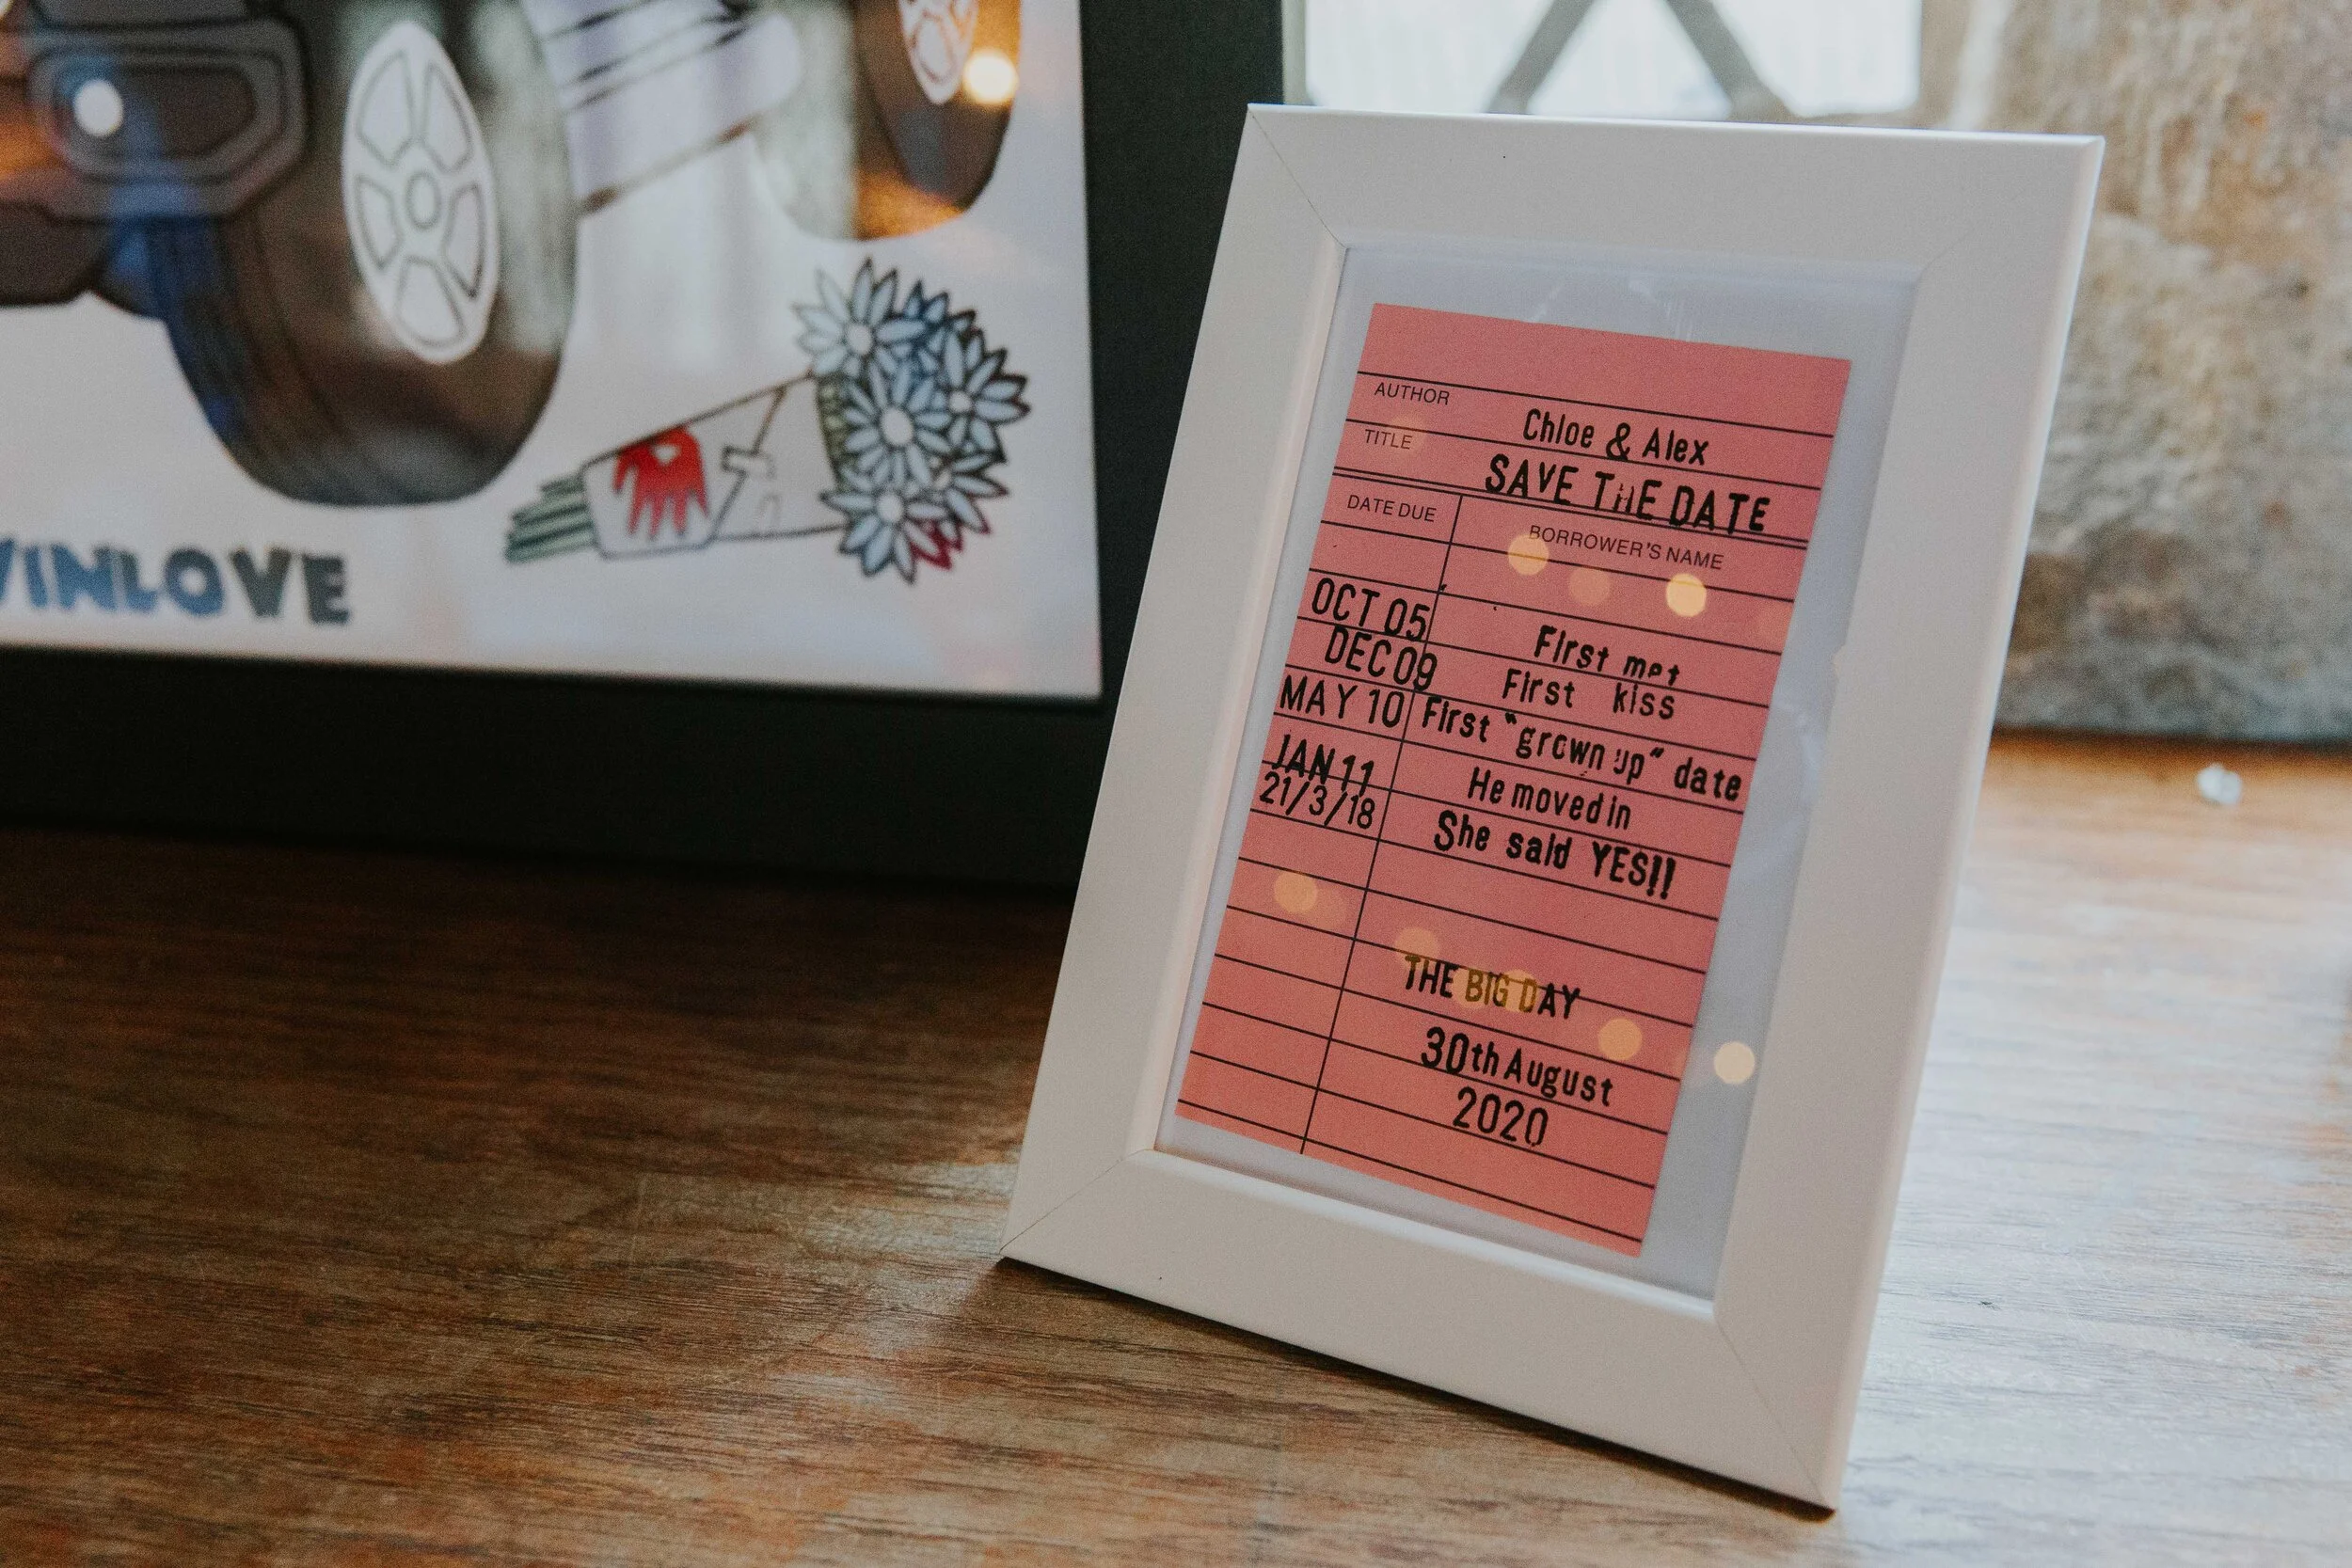 VINLOVE
AUTHOR
Chloe & Alex
TITLE
SAVE THE DATE
DATE DUE BORROWER'S NAME
OCT 05 First met
DEC 09 First kiss
MAY 10 First "grown up" date
JAN 11 He moved in
21/3/18 She said YES!!
THE BIG DAY
30th August
2020